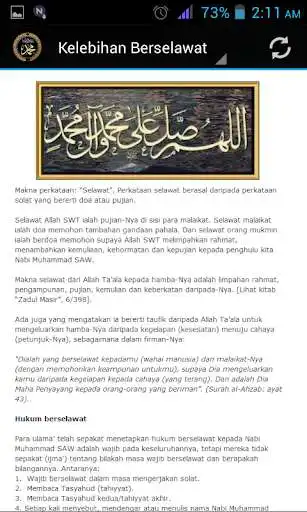 73% 2:11 AM
Kelebihan Berselawat
اللهم صل على محمد وآل محمد
Makna perkataan: "Selawat". Perkataan selawat berasal daripada perkataan
solat yang bererti doa atau pujian.
Selawat Allah SWT ialah pujian-Nya di sisi para malaikat. Selawat malaikat
ialah doa memohon tambahan gandaan pahala. Dan selawat orang mukmin
ialah berdoa memohon supaya Allah SWT melimpahkan rahmat,
menambahkan kemuliaan, kehormatan dan kepujian kepada penghulu kita
Nabi Muhammad SAW.
Makna selawat dari Allah Ta'ala kepada hamba-Nya adalah limpahan rahmat,
pengampunan, pujian, kemulian dan keberkatan daripada-Nya. [Lihat kitab
"Zadul Masir", 6/398].
Ada juga yang mengatakan ia bererti taufik daripada Allah Ta'ala untuk
mengeluarkan hamba-Nya daripada kegelapan (kesesatan) menuju cahaya
(petunjuk-Nya), sebagaimana dalam firman-Nya:
"Dialah yang berselawat kepadamu (wahai manusia) dan malaikat-Nya
(dengan memohonkan keampunan untukmu), supaya Dia mengeluarkan
kamu daripada kegelapan kepada cahaya (yang terang). Dan adalah Dia
Maha Penyayang kepada orang-orang yang beriman". (Surah al-Ahzab: ayat
43).
Hukum berselawat
Para ulama' telah sepakat menetapkan hukum berselawat kepada Nabi
Muhammad SAW adalah wajib pada keseluruhannya, tetapi mereka tidak
sepakat (ijma') tentang bilakah masa wajib berselawat dan berapakah
bilangannya. Antaranya:
1. Wajib berselawat dalam masa mengerjakan solat.
2. Membaca Tasyahud (tahiyyat).
3. Membaca Tasyahud kedua/tahiyyat akhir.
4. Setiap kali menyebut, mendengar atau menulis nama Nabi Muhammad